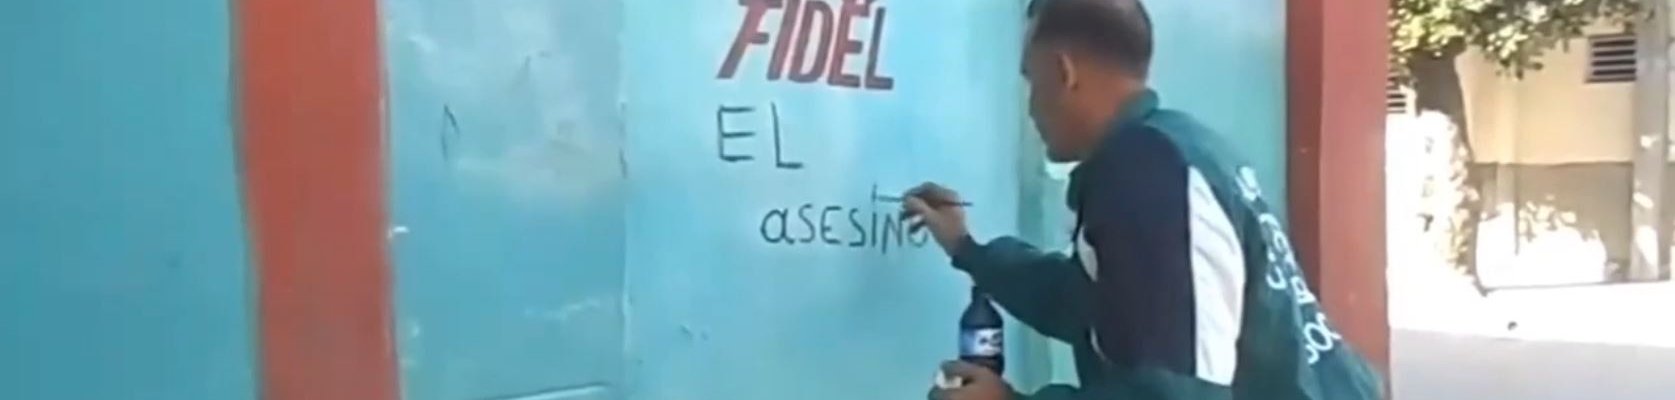 FIDEL
EL
ASESINO